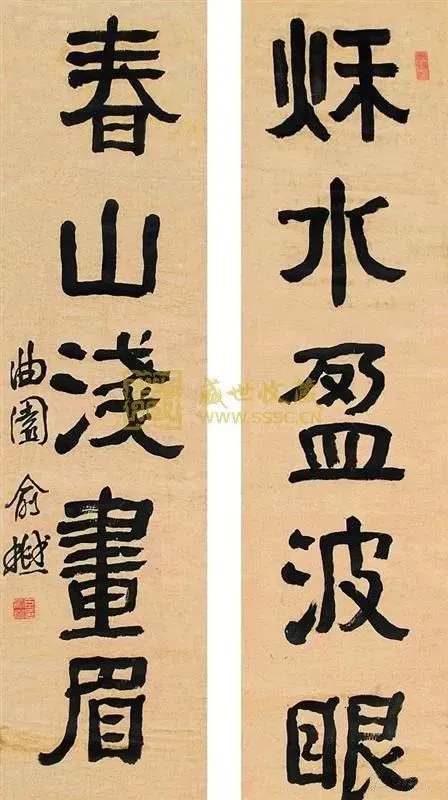 秌水盈波眼
春山淺畫眉
曲園俞樾
盛世收藏
WWW.SSSC.CN